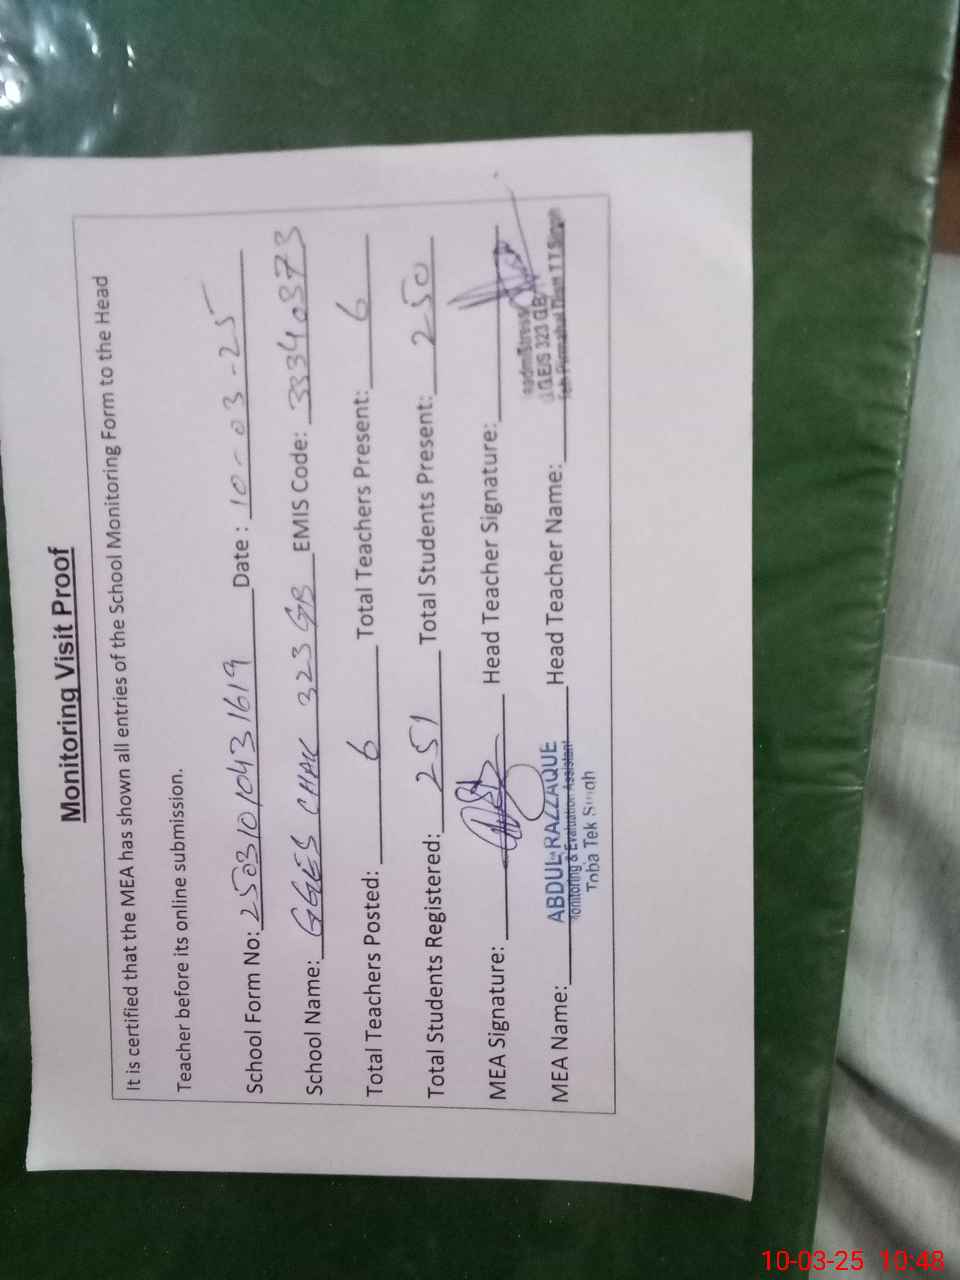 Monitoring Visit Proof
It is certified that the MEA has shown all entries of the School Monitoring Form to the Head
Teacher before its online submission.
School Form No: 25031010431619 Date : 10-03-25
School Name: GGES CHAK 323 GB EMIS Code: 33340373
Total Teachers Posted: 6 Total Teachers Present: 6
Total Students Registered: 251 Total Students Present: 250
MEA Signature: Head Teacher Signature:
MEA Name: ABDUL RAZZAQUE Head Teacher Name:
Monitoring & Evaluation Assistant
Toba Tek Singh
Headmistress
G.G.E/S 323 GB
Teh Pirmahal Distt T.T.Singh
10-03-25 10:48